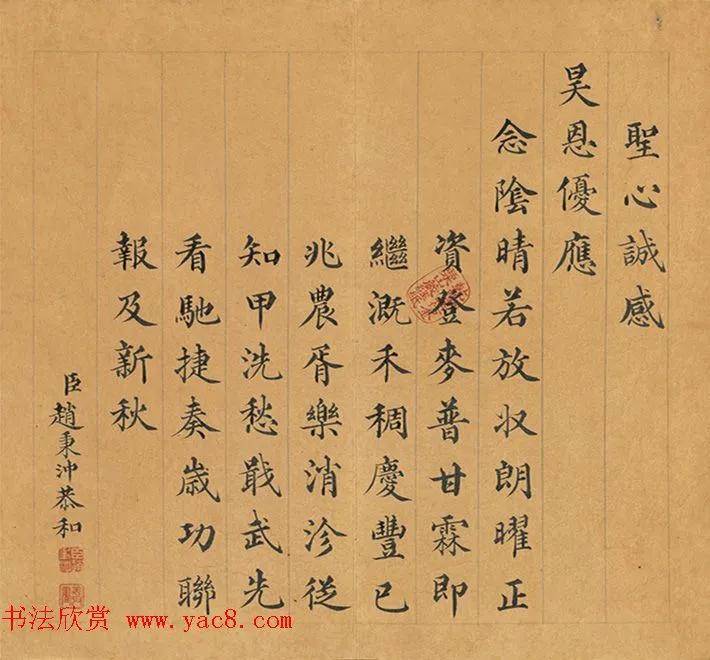 聖心誠感
昊恩優應
念陰晴若放収朗曜正
資登麥普甘霖即
繼溉禾稠慶豐已
兆農胥樂消沴從
知甲洗愁戢武先
看馳捷奏歲功聯
報及新秋
臣趙秉沖恭和
书法欣赏 www.yac8.com